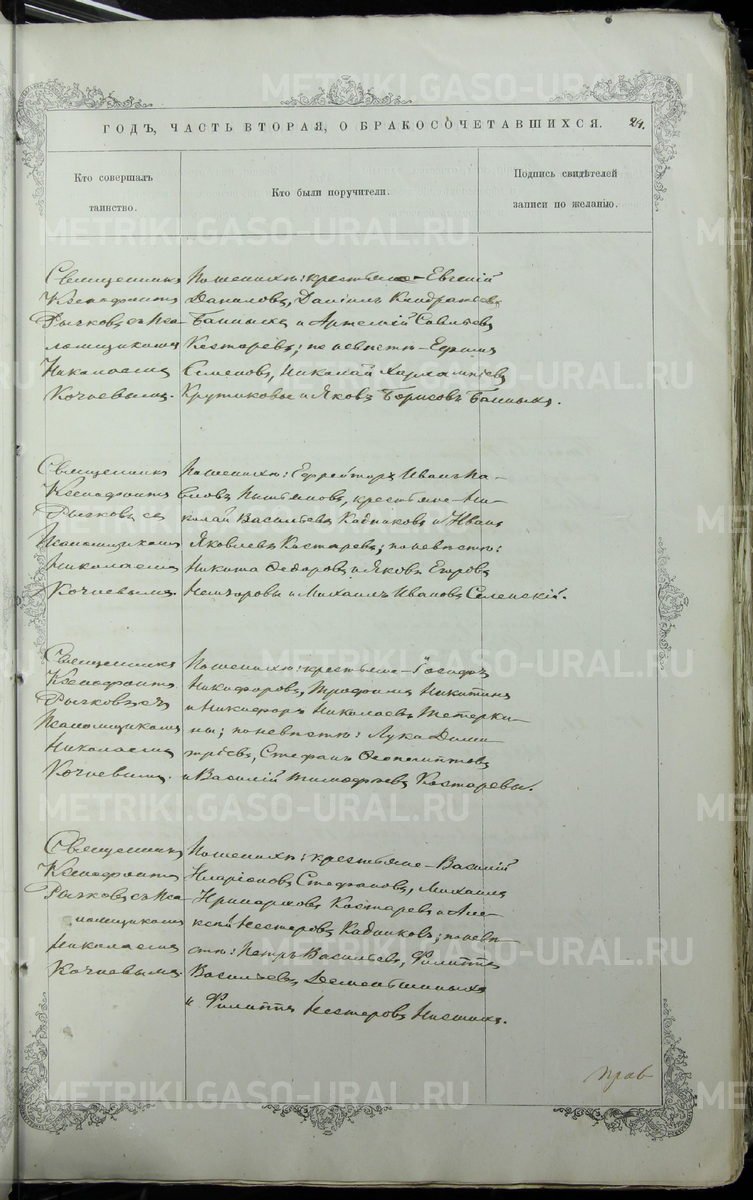 ГОДЪ, ЧАСТЬ ВТОРАЯ, О БРАКОСОЧЕТАВШИХСЯ. 24.
Кто совершалъ
таинство.
Кто были поручители.
Подпись свидѣтелей
записи по желанію.
Священникъ
Ксенофонтъ
Рычковъ съ Пса-
ломщикомъ
Николаемъ
Кочневымъ.
По женихѣ: крестьяне – Евгеній
Даниловъ, Даніилъ Кондратьевъ
Банныхъ и Артемій Савельевъ
Костаревъ; по невѣстѣ – Ефимъ
Семеновъ, Николай Харлампіевъ
Крутиковы и Яковъ Борисовъ Банныхъ.
Священникъ
Ксенофонтъ
Рычковъ съ
Псаломщикомъ
Николаемъ
Кочневымъ.
По женихѣ: Ефрейторъ Иванъ Па-
вловъ крестьяне – Ни-
колай Васильевъ Кадниковъ и Иванъ
Яковлевъ Костаревъ; по невѣстѣ:
Никита Ѳедоровъ и Яковъ Егоровъ
и Михаилъ Ивановъ
Священникъ
Ксенофонтъ
Рычковъ съ
Псаломщикомъ
Николаемъ
Кочневымъ.
По женихѣ: крестьяне – Іосифъ
Никифоровъ, Трофимъ Никитинъ
и Никифоръ Николаевъ Тетерки-
ны; по невѣстѣ: Лука Дими-
тріевъ, Стефанъ Ѳеопемптовъ
и Василій Тимофѣевъ Костаревы.
Священникъ
Ксенофонтъ
Рычковъ съ Пса-
ломщикомъ
Николаемъ
Кочневымъ.
По женихѣ: крестьяне – Василій
Иларіоновъ Стефановъ, Михаилъ
Костаревъ и Але-
ксѣй Нестеровъ Кадниковъ; по невѣ-
стѣ: Петръ Васильевъ, Филиппъ
Васильевъ Дементьиныхъ
и Филиппъ Нестеровъ
METRIKI.GASO-URAL.RU